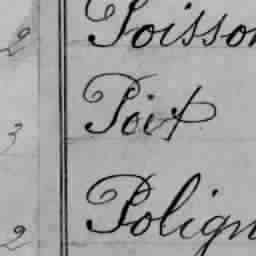 2 Poisson
3 Poix
2 Polign